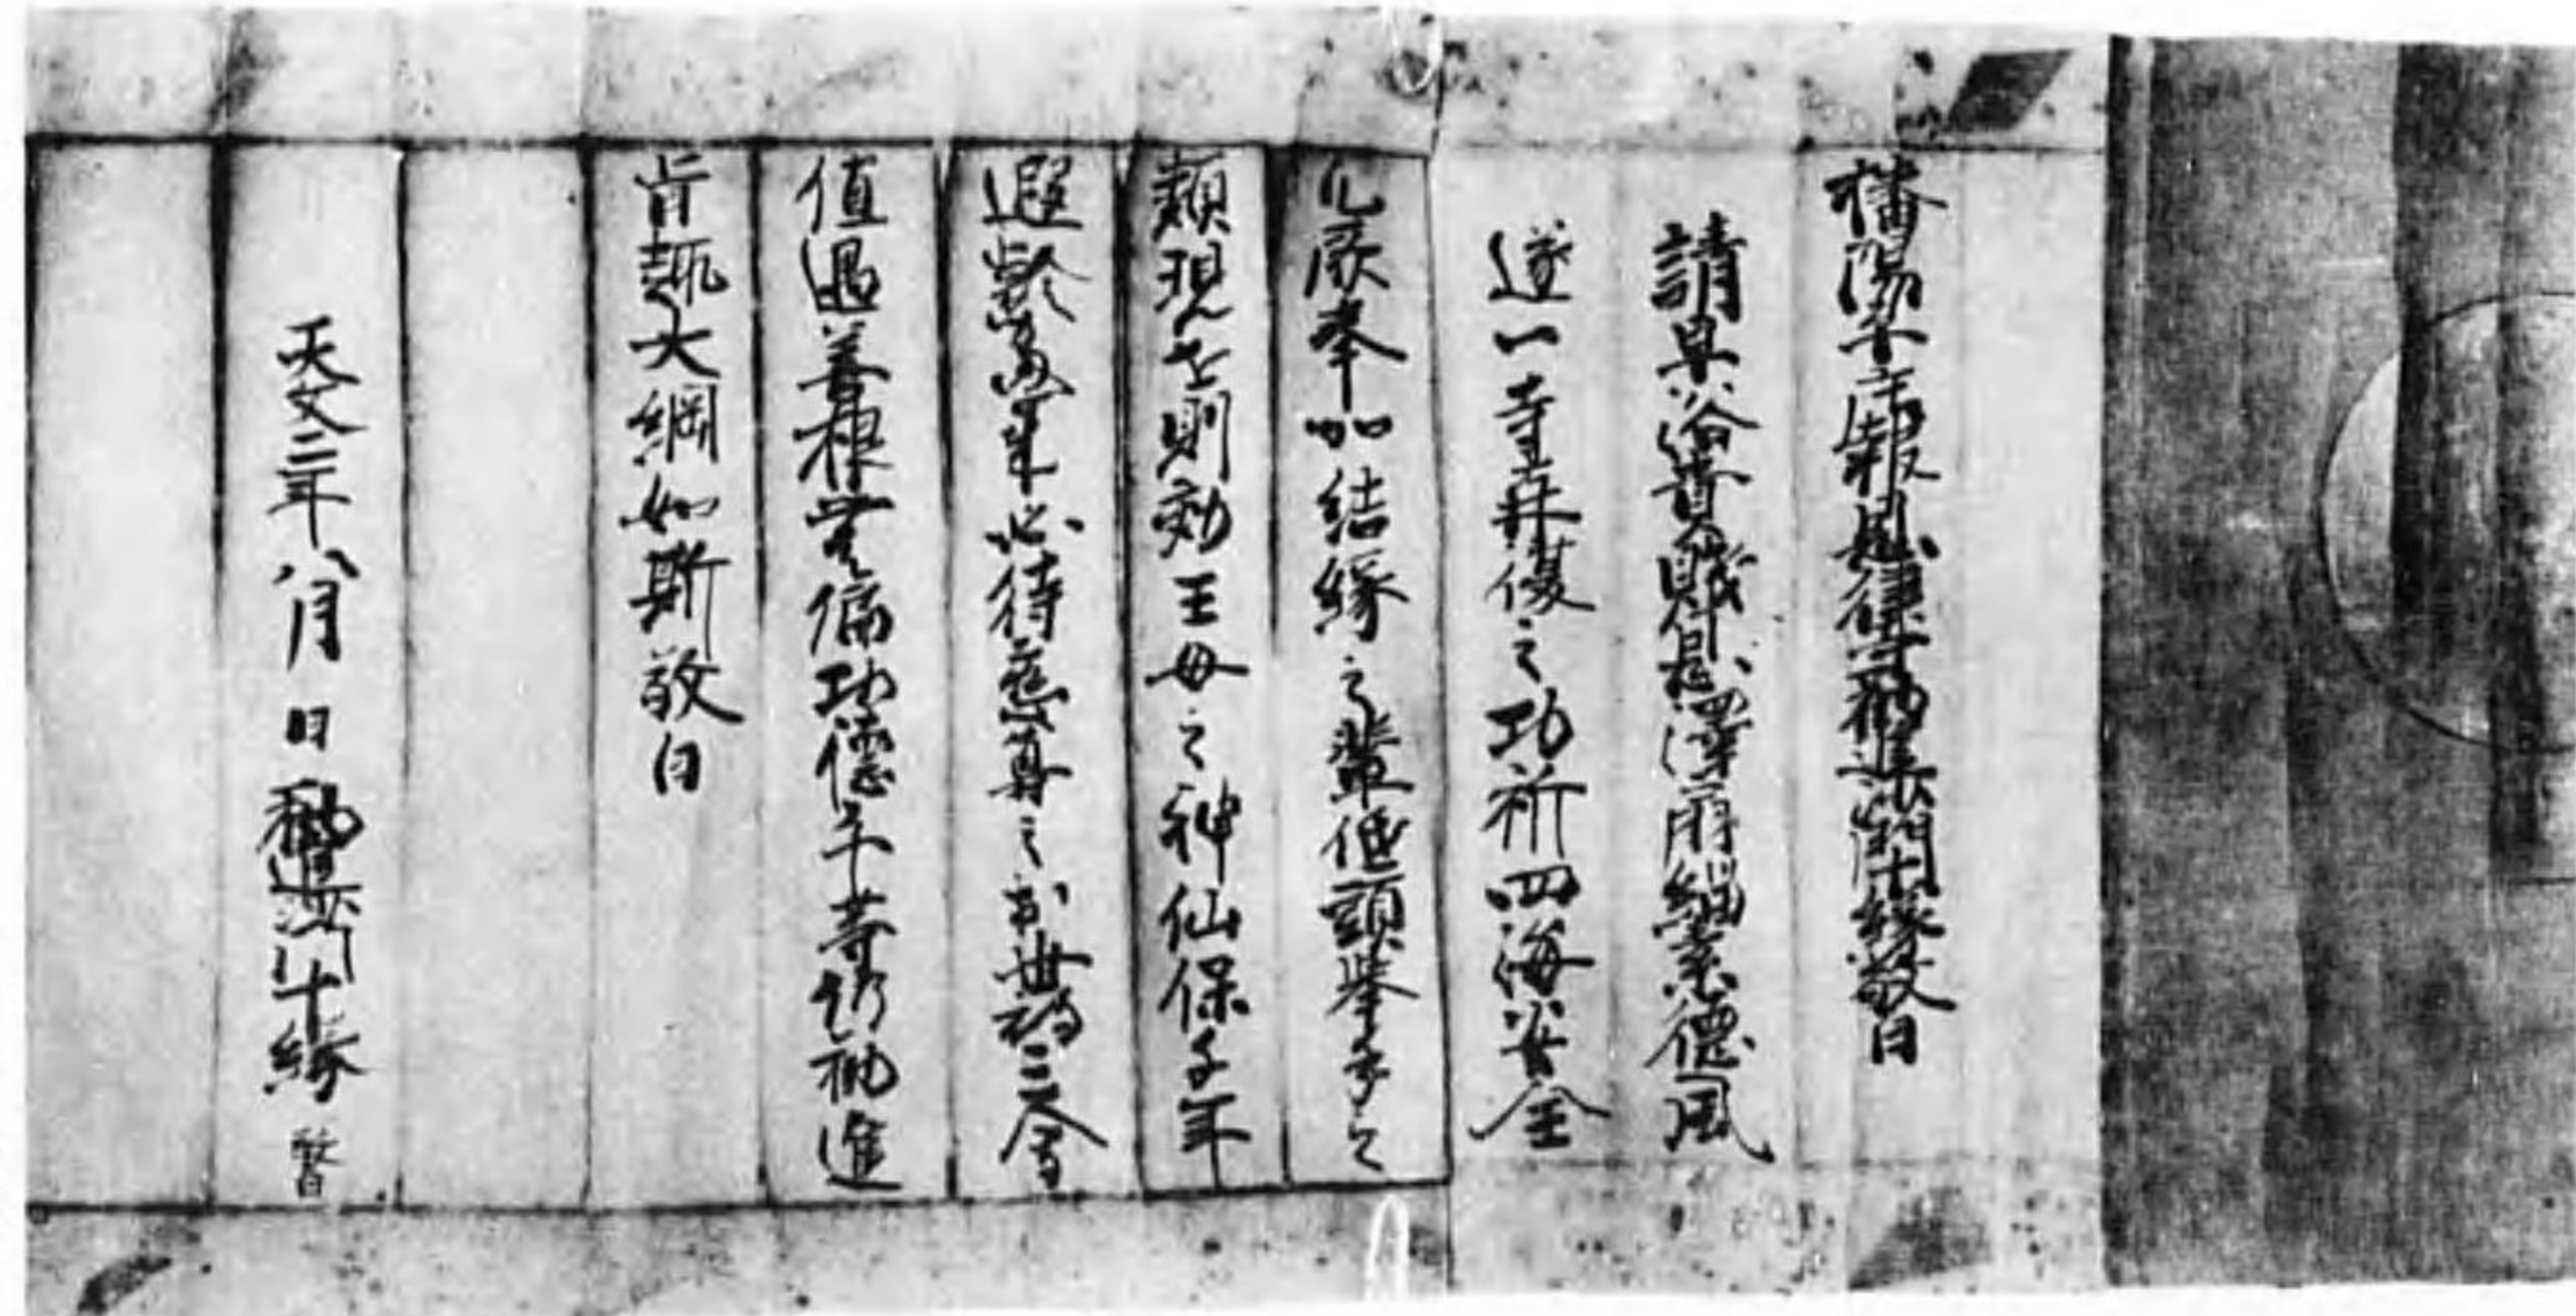 播陽平庄報恩律寺勧進沙門十縁敬白
請早以浴貴賤伴恩澤雨緇素徳風
遂一寺再復之功祈四海安全
化厥奉加結縁之輩低頭挙手之
類現世則効王母之神仙保千年
遐齢當来必待慈尊之出世詣三會
値遇善根無偏功徳平等仍勧進
旨趣大綱如斯敬白
天文二年八月 日 勧進沙門十縁 敬白